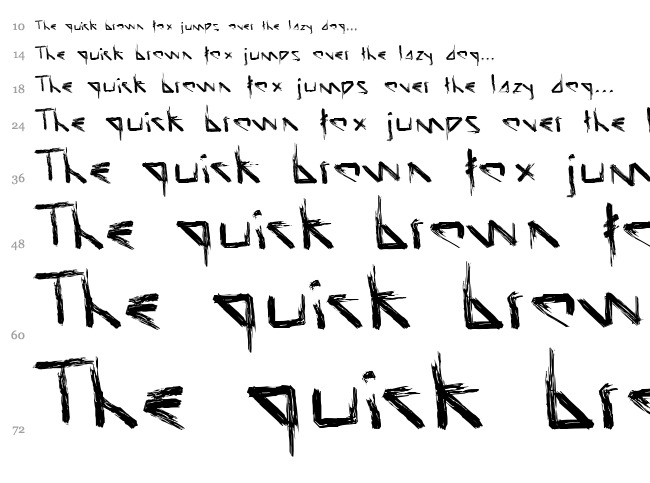 10 The quick brown fox jumps over the lazy dog...
14 The quick brown fox jumps over the lazy dog...
18 The quick brown fox jumps over the lazy dog...
24 The quick brown fox jumps over the l
36 The quick brown fox jum
48 The quick brown fo
60 The quick brown
72 The quick bro